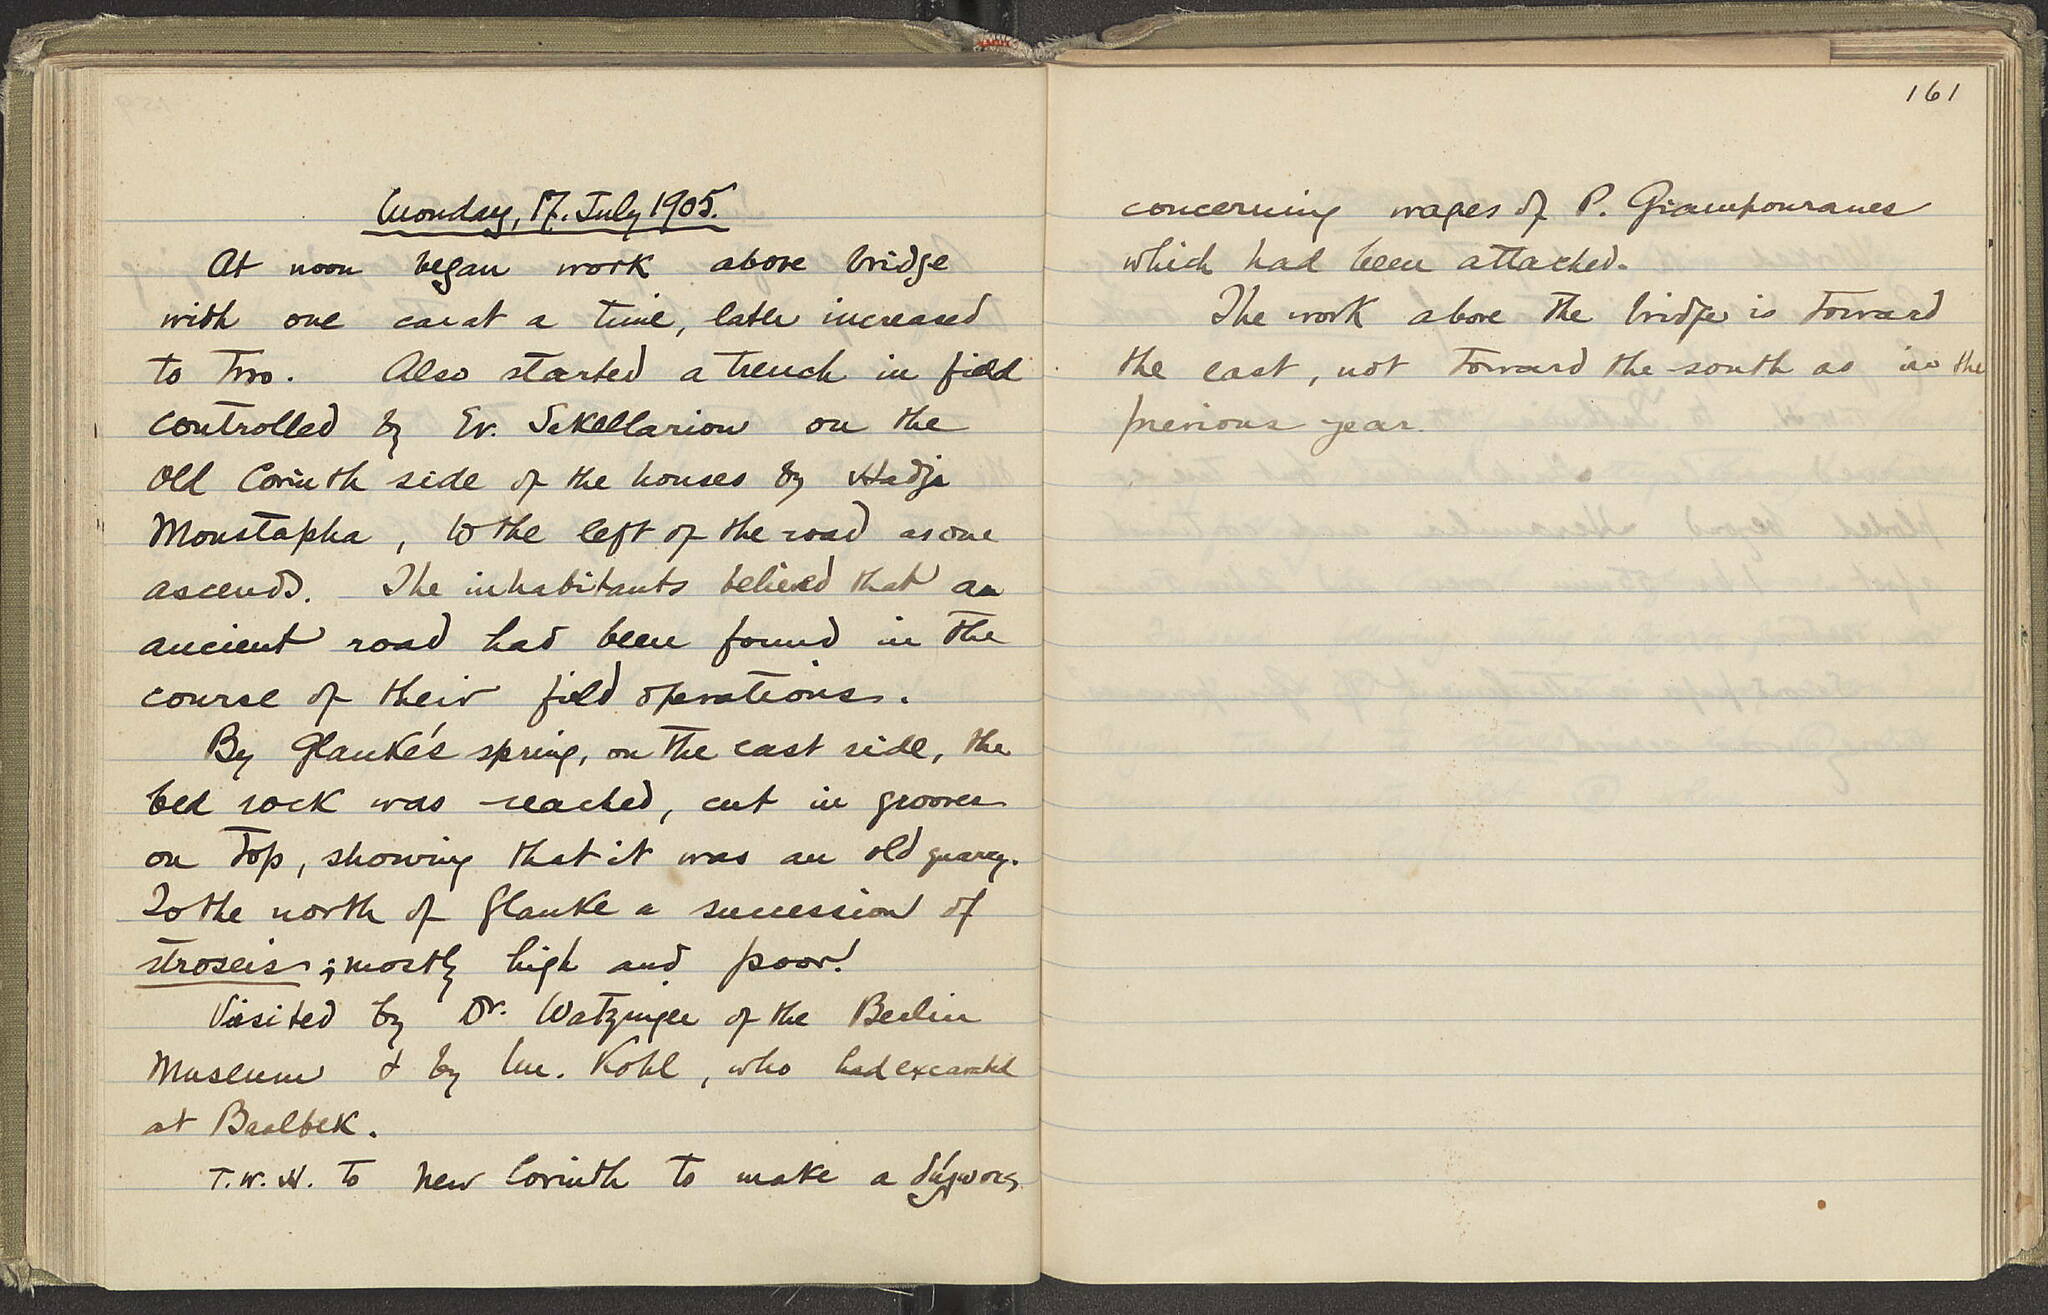 Monday, 17. July 1905.
At noon began work above bridge
with one car at a time, later increased
to two. Also started a trench in field
controlled by Ev. Sakellariou on the
Old Corinth side of the houses by Hadji
Moustapha, to the left of the road as one
ascends. The inhabitants believed that an
ancient road had been found in the
course of their field operations.
By Glauke's spring, on the east side, the
bed rock was reached, cut in grooves
on top, showing that it was an old quarry.
To the north of Glauke a succession of
stroseis; mostly high and poor.
Visited by Dr. Watzinger of the Berlin
Museum & by Mr. Kohl, who had excavated
at Baalbek.
T.W.H. to New Corinth to make a
161
concerning wages of P. Giampouranes
which had been attached.
The work above the bridge is toward
the east, not toward the south as in the
previous year.